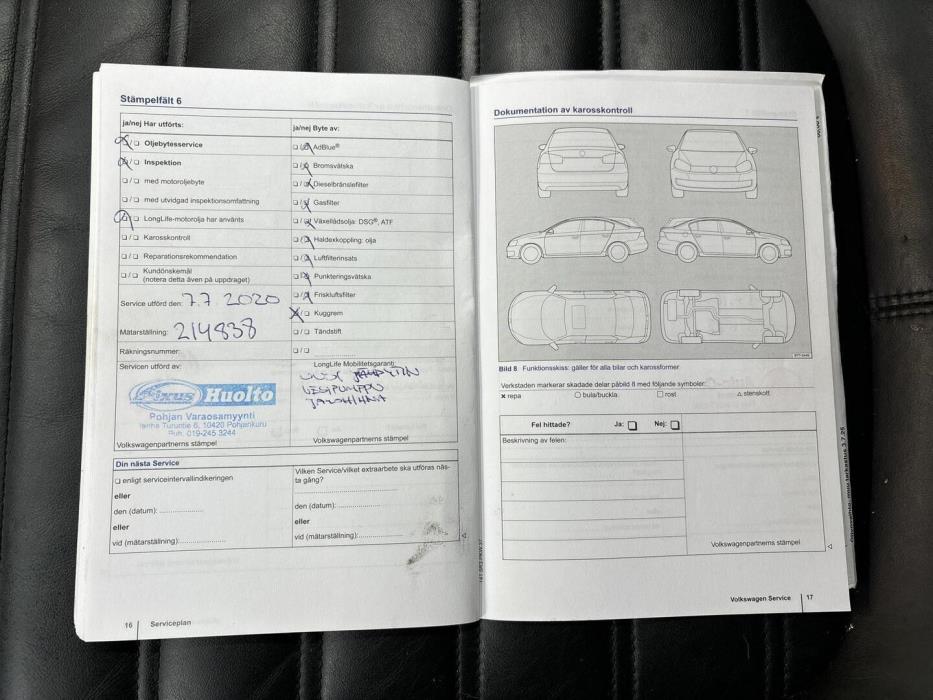 Stämpelfält 6
ja/nej Har utförts:
❏/❏ Oljebytesservice
❏/❏ Inspektion
❏/❏ med motoroljebyte
❏/❏ med utvidgad inspektionsomfattning
❏/❏ LongLife-motorolja har använts
❏/❏ Karosskontroll
❏/❏ Reparationsrekommendation
❏/❏ Kundönskemål
(notera detta även på uppdraget)
Service utförd den: 7.7 2020
Mätarställning: 214838
Räkningsnummer:
Servicen utförd av:
Fixus Huolto
Pohjan Varaosamyynti
10420 Pohjankuru
Puh. 019-245 3244
Volkswagenpartnerns stämpel
ja/nej Byte av:
❏/❏ AdBlue®
❏/❏ Bromsvätska
❏/❏ Dieselbränslefilter
❏/❏ Gasfilter
❏/❏ Växellådsolja: DSG®, ATF
❏/❏ Haldexkoppling: olja
❏/❏ Luftfilterinsats
❏/❏ Punkteringsvätska
❏/❏ Friskluftsfilter
❏/❏ Kuggrem
❏/❏ Tändstift
❏/❏
LongLife Mobilitetsgaranti:
VESIPUMPPU
JAKOHIHNA
Volkswagenpartnerns stämpel
Din nästa Service
❏ enligt serviceintervallindikeringen
eller
den (datum):
eller
vid (mätarställning):
Vilken Service/vilket extraarbete ska utföras näs-
ta gång?
den (datum):
eller
vid (mätarställning):
16 Serviceplan
Dokumentation av karosskontroll
Bild 8 Funktionsskiss: gäller för alla bilar och karossformer.
Verkstaden markerar skadade delar påbild 8 med följande symboler:
x repa ○ bula/buckla □ rost △ stenskott
Fel hittade? Ja: ❏ Nej: ❏
Beskrivning av felen:
Volkswagenpartnerns stämpel
Volkswagen Service 17